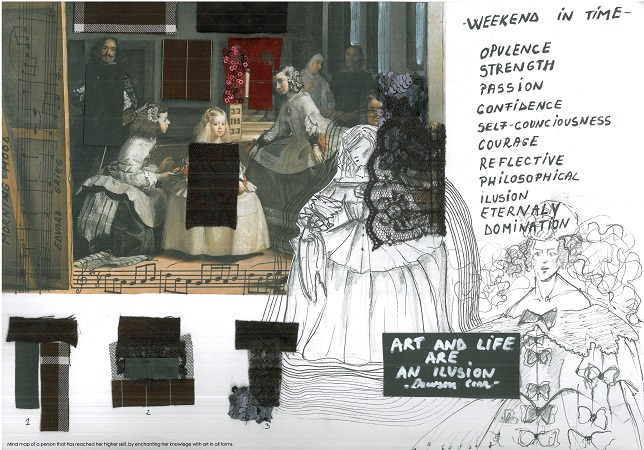 -WEEKEND IN TIME-
OPULENCE
STRENGTH
PASSION
CONFIDENCE
SELF-COUNCIOUSNESS
COURAGE
REFLECTIVE
PHILOSOPHICAL
ILUSION
ETERNALY
DOMINATION
MORNING MOOD
EDVARD GRIEG
ART AND LIFE
ARE
AN ILUSION
1
2
3
Mind map of a person that has reached her higher self, by enchanting her knowlege with art in all forms.